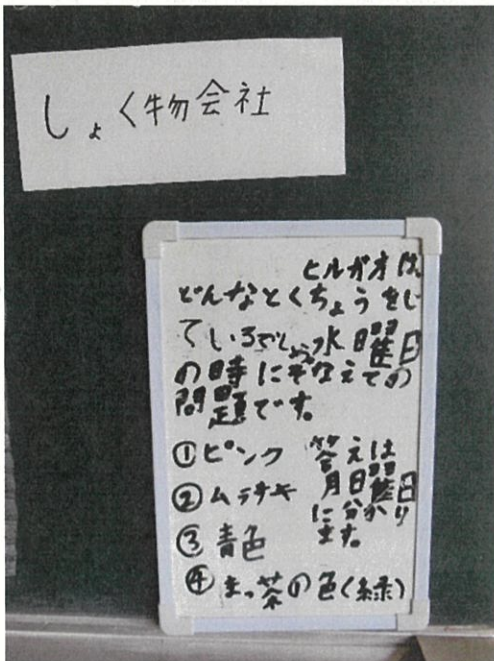 しょく物会社
ヒルガオは
どんなとくちょうをし
ているでしょう水曜日
の時にそなえての
問題です。
①ピンク
②ムラサキ
③青色
④まっ茶の色(緑)
答えは
月曜日
に分かり
ます。